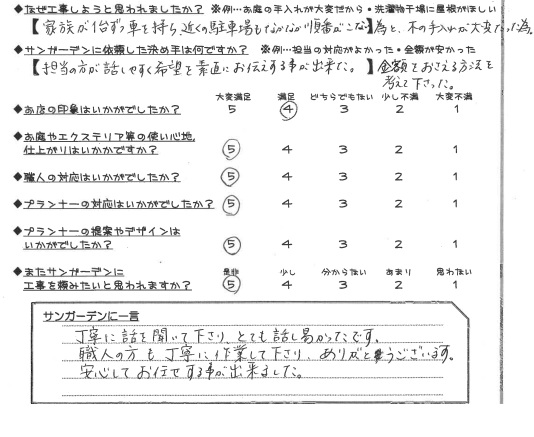 ◆なぜ工事しようと思われましたか？ ※例…お庭の手入れが大変だから・洗濯物干場に屋根がほしい
【家族が1台ずつ車を持ち、近くの駐車場もなかなか順番がこない】為と、木の手入れが大変だった為。
◆サンガーデンに依頼した決め手は何ですか？ ※例…担当の対応がよかった・金額が安かった
【担当の方が話しやすく希望を素直にお伝えする事が出来た。】金額をおさえる方法を
考えて下さった。
大変満足 満足 どちらでもない 少し不満 大変不満
◆お店の印象はいかがでしたか？ 5 4 3 2 1
◆お庭やエクステリア等の使い心地、
仕上がりはいかかですか？ 5 4 3 2 1
◆職人の対応はいかがでしたか？ 5 4 3 2 1
◆プランナーの対応はいかがでしたか？ 5 4 3 2 1
◆プランナーの提案やデザインは
いかがでしたか？ 5 4 3 2 1
◆またサンガーデンに 是非 少し 分からない あまり 思わない
工事を頼みたいと思われますか？ 5 4 3 2 1
サンガーデンに一言
丁寧に話を聞いて下さり、とても話し易かったです。
職人の方も丁寧に作業して下さり、ありがとうございます。
安心してお任せする事が出来ました。